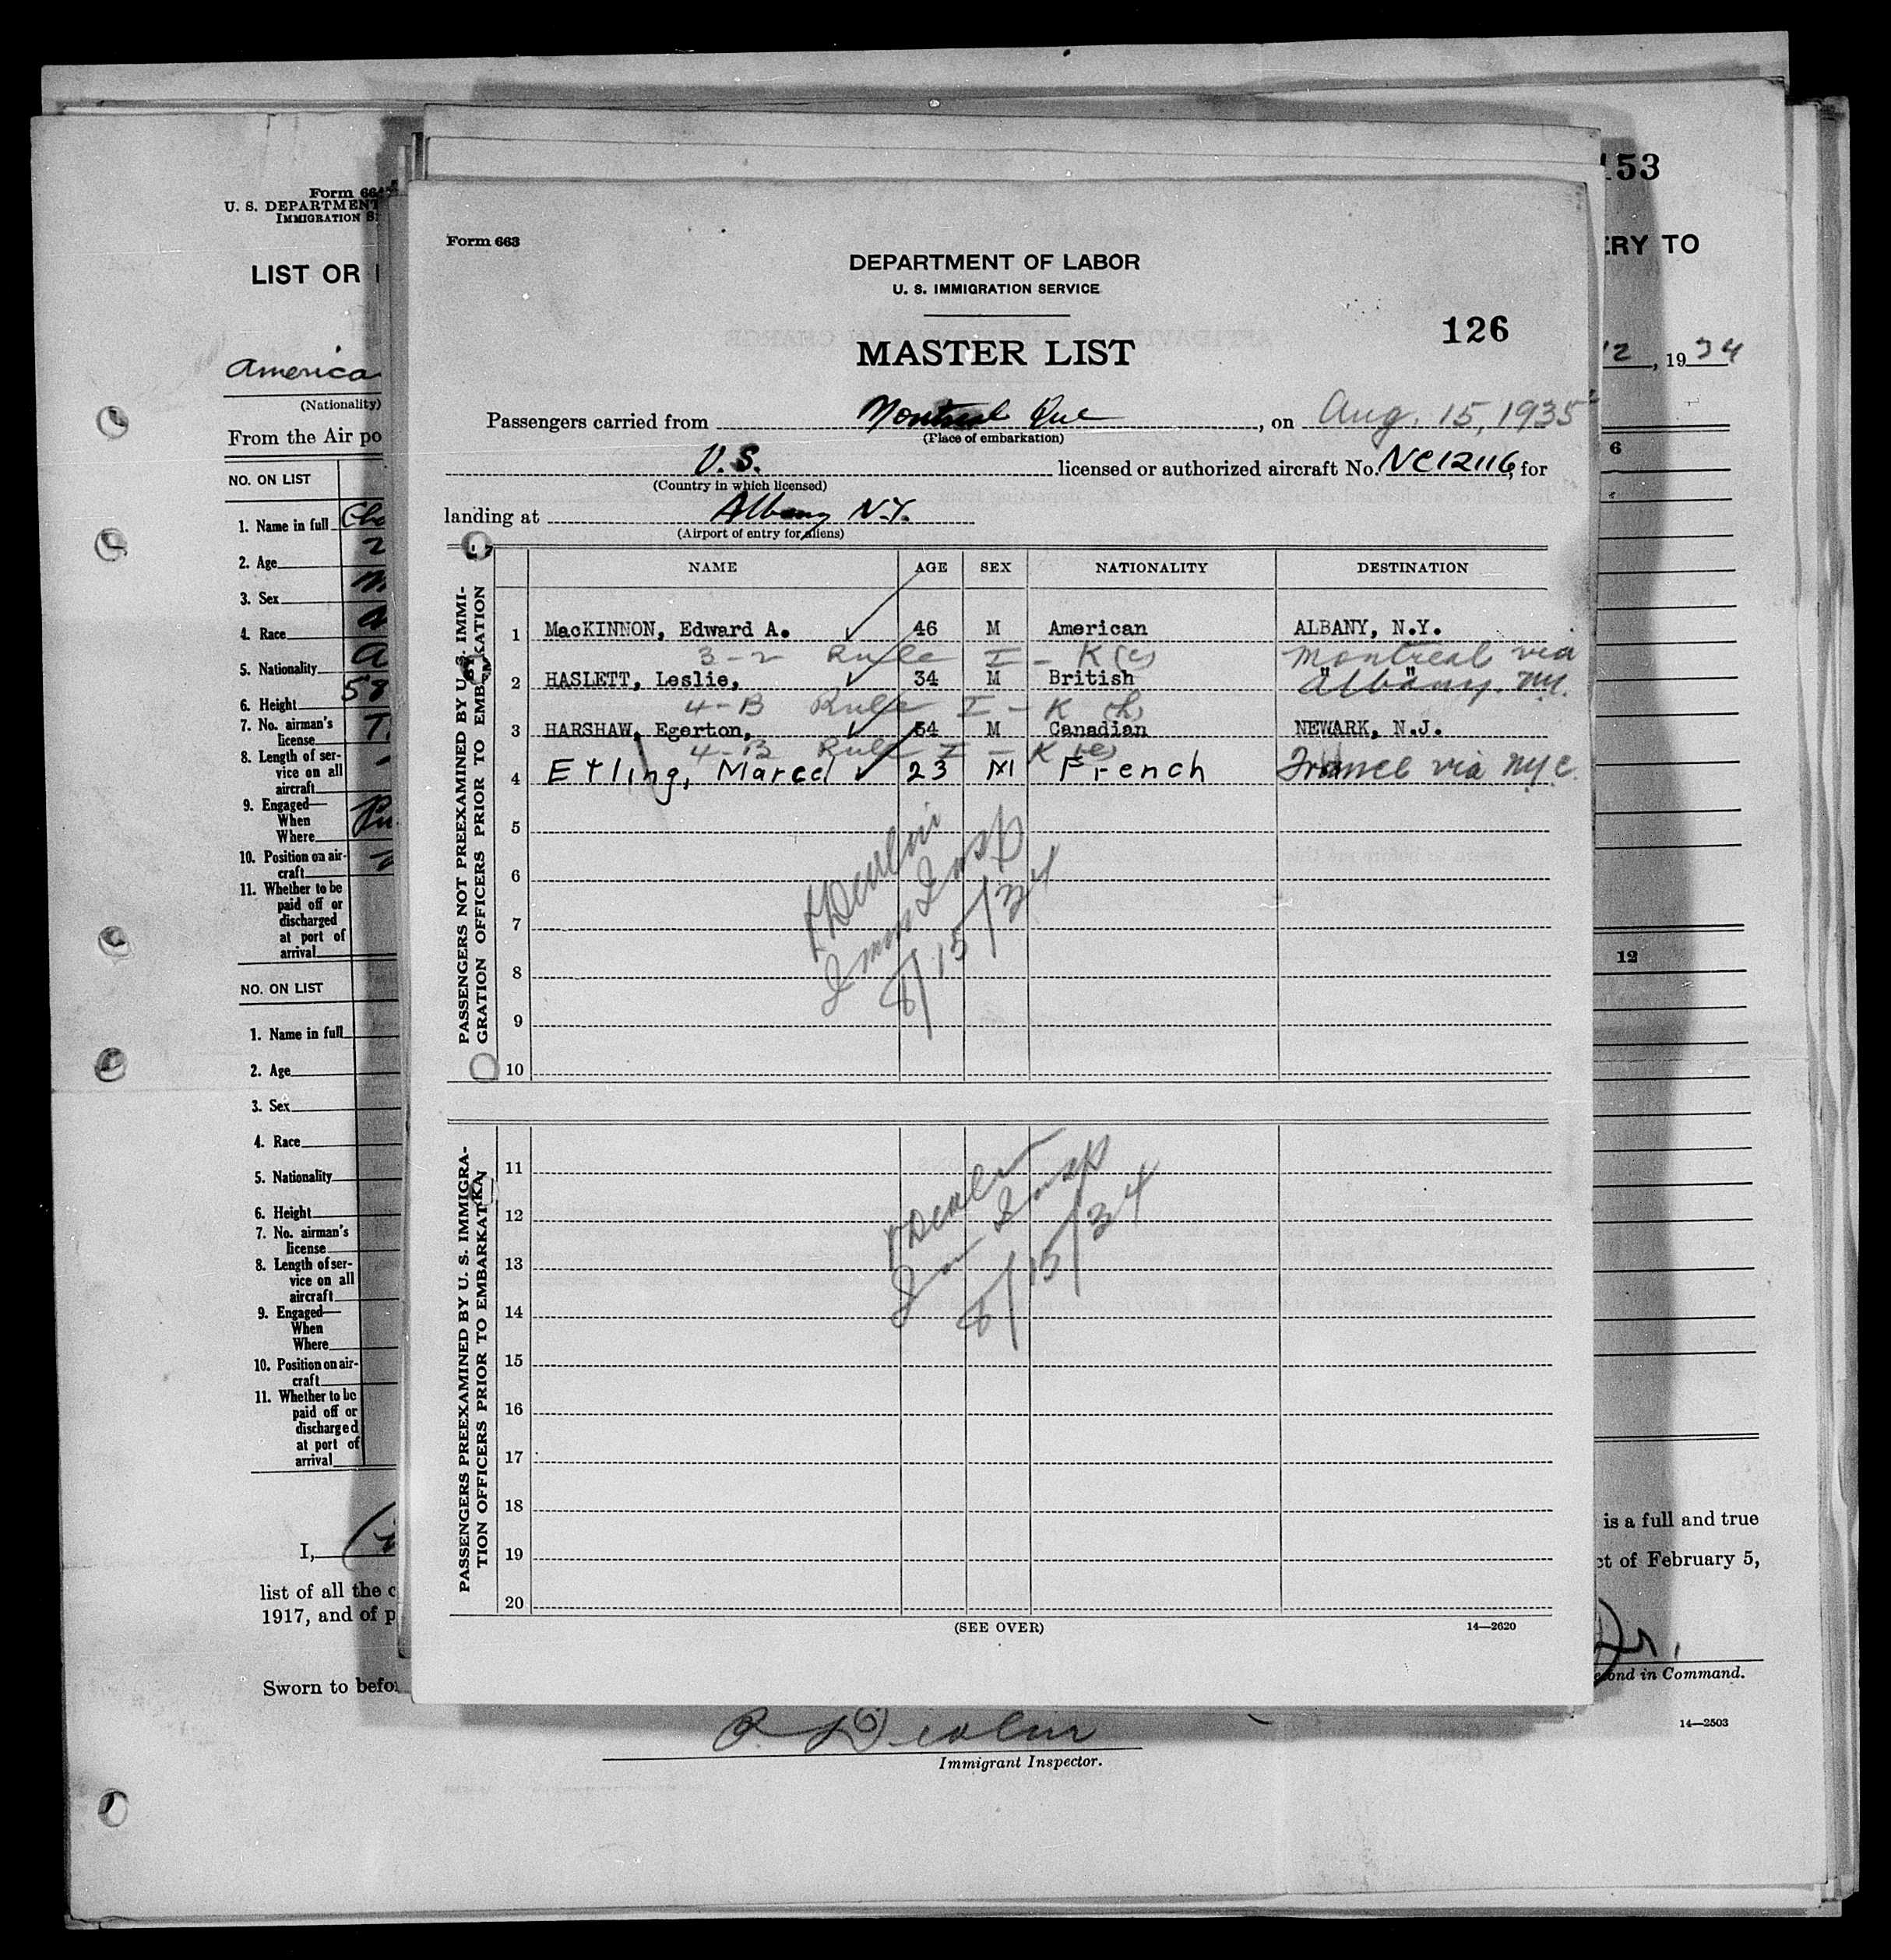 Form 663
DEPARTMENT OF LABOR
U. S. IMMIGRATION SERVICE
126
MASTER LIST
Passengers carried from Montreal Que, on Aug. 15, 1935
(Place of embarkation)
U.S. licensed or authorized aircraft No. NC12116, for
(Country in which licensed)
landing at Albany N.Y.
(Airport of entry for aliens)
PASSENGERS NOT PREEXAMINED BY U. S. IMMI-
GRATION OFFICERS PRIOR TO EMBARKATION
NAME AGE SEX NATIONALITY DESTINATION
1 MacKINNON, Edward A. ✓ 46 M American ALBANY, N.Y.
3-2 Rule I - K (c) Montreal via
2 HASLETT, Leslie, ✓ 34 M British " " Albany. NY.
4-B Rule I - K (h)
3 HARSHAW, Egerton, ✓ 54 M Canadian NEWARK, N.J.
4-B Rule I - K (e)
4 Etling, Marcel ✓ 23 M French France via NYC.
5
6
7
8
9
10
Devlin
Imm Insp
8/15/34
PASSENGERS PREEXAMINED BY U. S. IMMIGRA-
TION OFFICERS PRIOR TO EMBARKATION
11
12
13
14
15
16
17
18
19
20
Devlin
Im Insp
8/15/34
(SEE OVER) 14—2620
Form 66
U. S. DEPARTMENT
IMMIGRATION S
LIST OR
America
(Nationality)
From the Air po
NO. ON LIST
1. Name in full
2. Age
3. Sex
4. Race
5. Nationality
6. Height 58
7. No. airman's
license T
8. Length of ser-
vice on all
aircraft
9. Engaged—
When
Where
10. Position on air-
craft
11. Whether to be
paid off or
discharged
at port of
arrival
NO. ON LIST
1. Name in full
2. Age
3. Sex
4. Race
5. Nationality
6. Height
7. No. airman's
license
8. Length of ser-
vice on all
aircraft
9. Engaged—
When
Where
10. Position on air-
craft
11. Whether to be
paid off or
discharged
at port of
arrival
I,
list of all the c
1917, and of p
Sworn to befo
153
ERY TO
12, 1934
6
12
is a full and true
ct of February 5,
Jr.
econd in Command.
14—2503
P. Devlin
Immigrant Inspector.